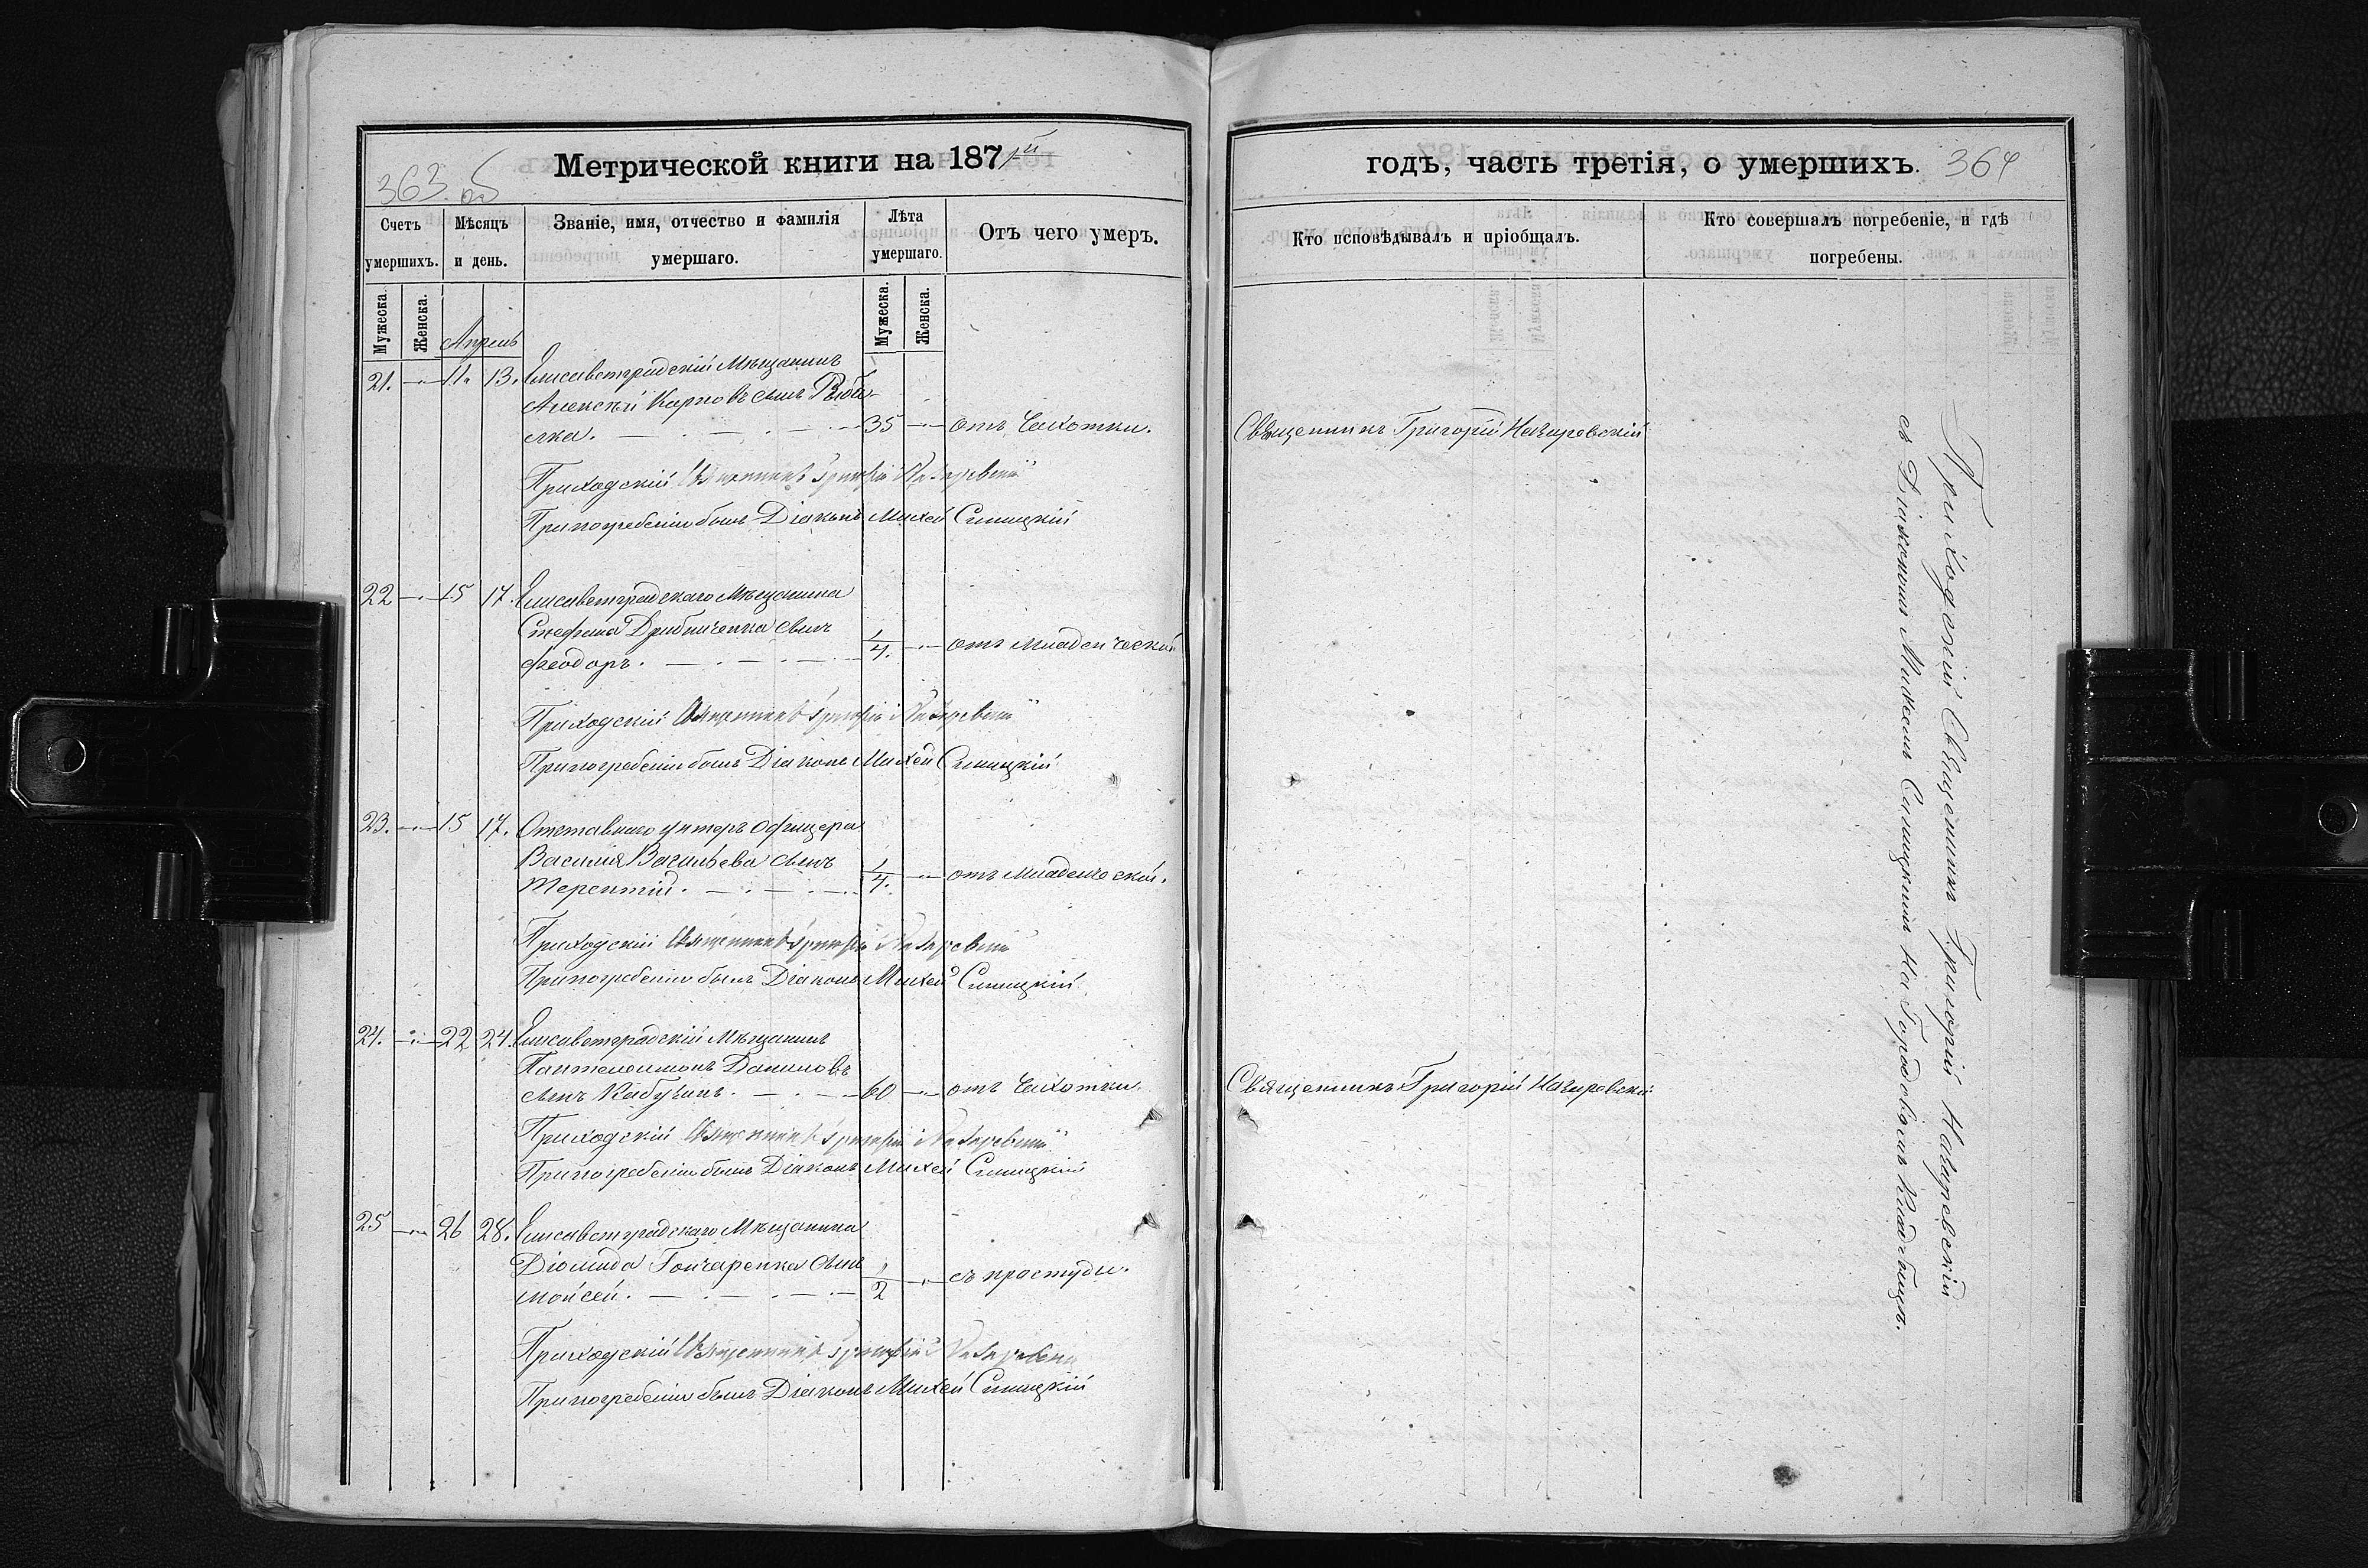 363 об
Метрической книги на 1871й
Счетъ умершихъ.
Мѣсяцъ и день.
Званіе, имя, отчество и фамилія умершаго.
Лѣта умершаго.
Отъ чего умеръ.
Мужеска.
Женска.
Мужеска.
Женска.
Апрель
21. 11. 13. Елисаветградскій Мѣщанинъ
Алексѣй Карповъ сынъ Рыба-
лка. 35 отъ Чахотки.
Приходскій Священникъ Григорій Назаревскій
При погребеніи былъ Діаконъ Михей Синицкій
22 15 17. Елисаветградскаго Мѣщанина
Стефана Дрибниченка сынъ
Феодоръ. 1/4. отъ младенческой
Приходскій Священникъ Григорій Назаревскій
При погребеніи былъ Діаконъ Михей Синицкій
23. 15 17. Отставнаго унтеръ офицера
Василія Васильева сынъ
Терентій. 1/4. отъ младенческой.
Приходскій Священникъ Григорій Назаревскій
При погребеніи былъ Діаконъ Михей Синицкій
24. 22 24. Елисаветградскій Мѣщанинъ
Пантелеимонъ Даниловъ
сынъ Кабузанъ. 60 отъ Чахотки
Приходскій Священникъ Григорій Назаревскій
При погребеніи былъ Діаконъ Михей Синицкій
25 26 28. Елисаветградскаго Мѣщанина
Діомида Гончаренка сынъ
Мойсей. 2 съ простуды.
Приходскій Священникъ Григорій Назаревскій
При погребеніи былъ Діаконъ Михей Синицкій
годъ, часть третія, о умершихъ.
364
Кто исповѣдывалъ и пріобщалъ.
Кто совершалъ погребеніе, и гдѣ погребены.
Священникъ Григорій Назаревскій
Священникъ Григорій Назаревскій
Приходскій Священникъ Григорій Назаревскій
съ Діакономъ Михеемъ Синицкимъ на Городовомъ Кладбищѣ.